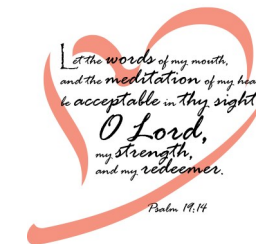 Let the words of my mouth,
and the meditation of my hea
be acceptable in thy sight
O Lord,
my strength,
and my redeemer.
Psalm 19:14